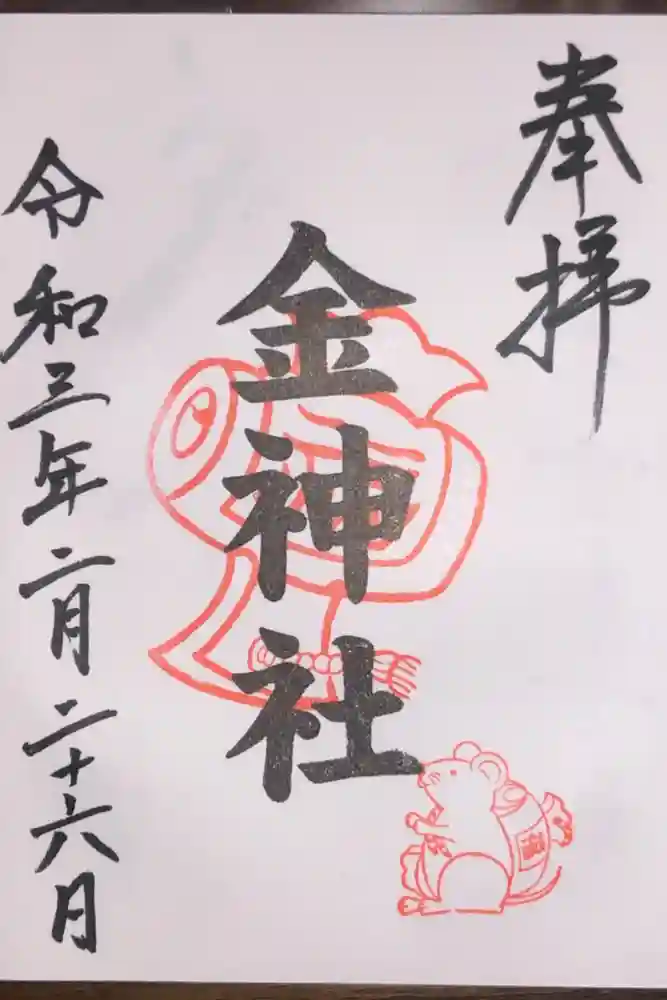 奉拝
金神社
令和三年二月二十六月